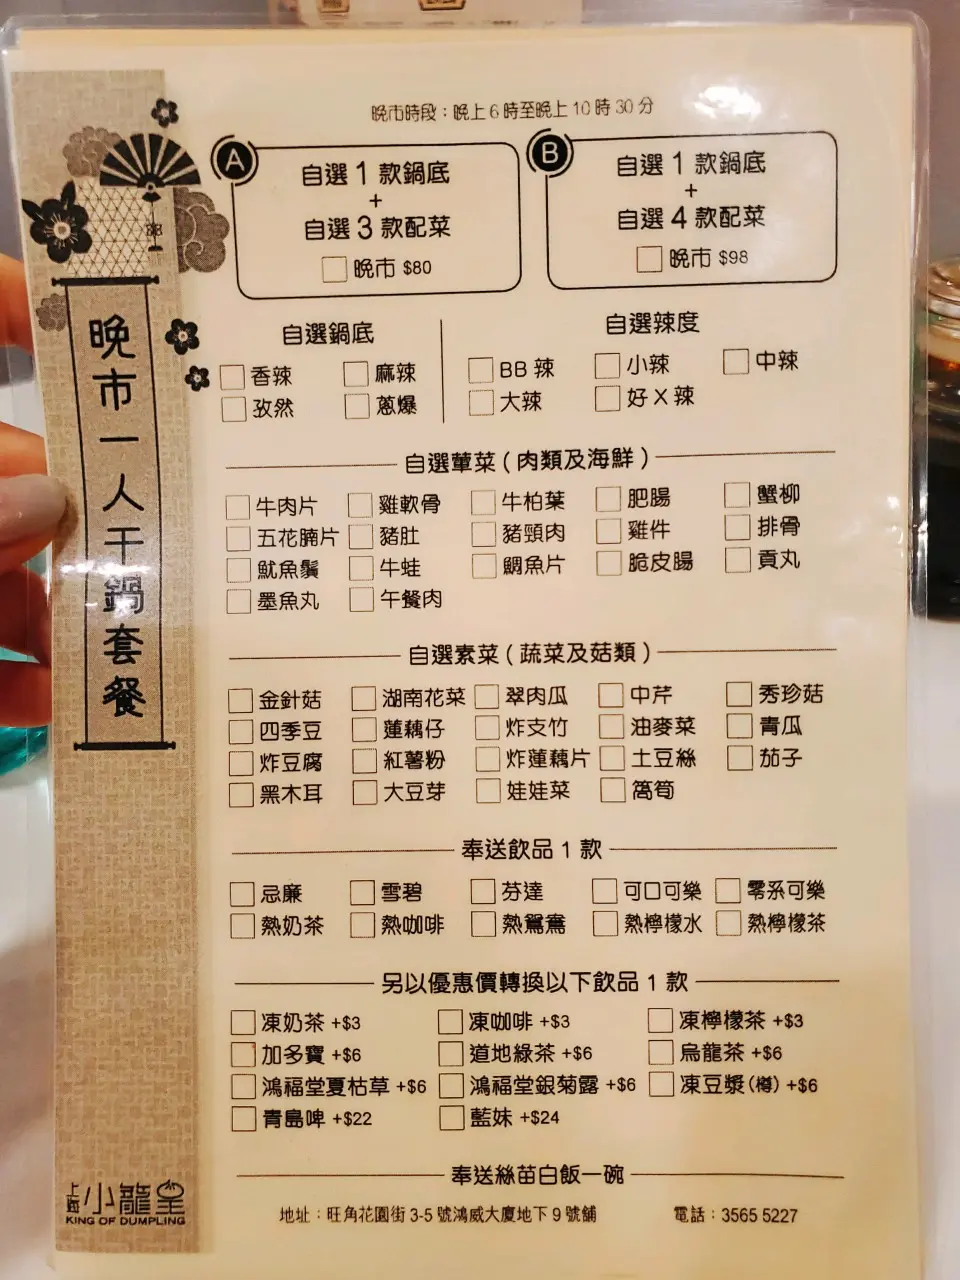 晚市時段：晚上6時至晚上10時30分
A
自選1款鍋底
+
自選3款配菜
晚市 $80
B
自選1款鍋底
+
自選4款配菜
晚市 $98
晚市一人干鍋套餐
自選鍋底
香辣 麻辣
孜然 蔥爆
自選辣度
BB辣 小辣 中辣
大辣 好X辣
自選葷菜(肉類及海鮮)
牛肉片 雞軟骨 牛柏葉 肥腸 蟹柳
五花腩片 豬肚 豬頸肉 雞件 排骨
魷魚鬚 牛蛙 鯛魚片 脆皮腸 貢丸
墨魚丸 午餐肉
自選素菜(蔬菜及菇類)
金針菇 湖南花菜 翠肉瓜 中芹 秀珍菇
四季豆 蓮藕仔 炸支竹 油麥菜 青瓜
炸豆腐 紅薯粉 炸蓮藕片 土豆絲 茄子
黑木耳 大豆芽 娃娃菜 萵筍
奉送飲品1款
忌廉 雪碧 芬達 可口可樂 零系可樂
熱奶茶 熱咖啡 熱鴛鴦 熱檸檬水 熱檸檬茶
另以優惠價轉換以下飲品1款
凍奶茶 +$3 凍咖啡 +$3 凍檸檬茶 +$3
加多寶 +$6 道地綠茶 +$6 烏龍茶 +$6
鴻福堂夏枯草 +$6 鴻福堂銀菊露 +$6 凍豆漿(樽) +$6
青島啤 +$22 藍妹 +$24
奉送絲苗白飯一碗
上海小龍皇
KING OF DUMPLING
地址：旺角花園街3-5號鴻威大廈地下9號舖 電話：3565 5227